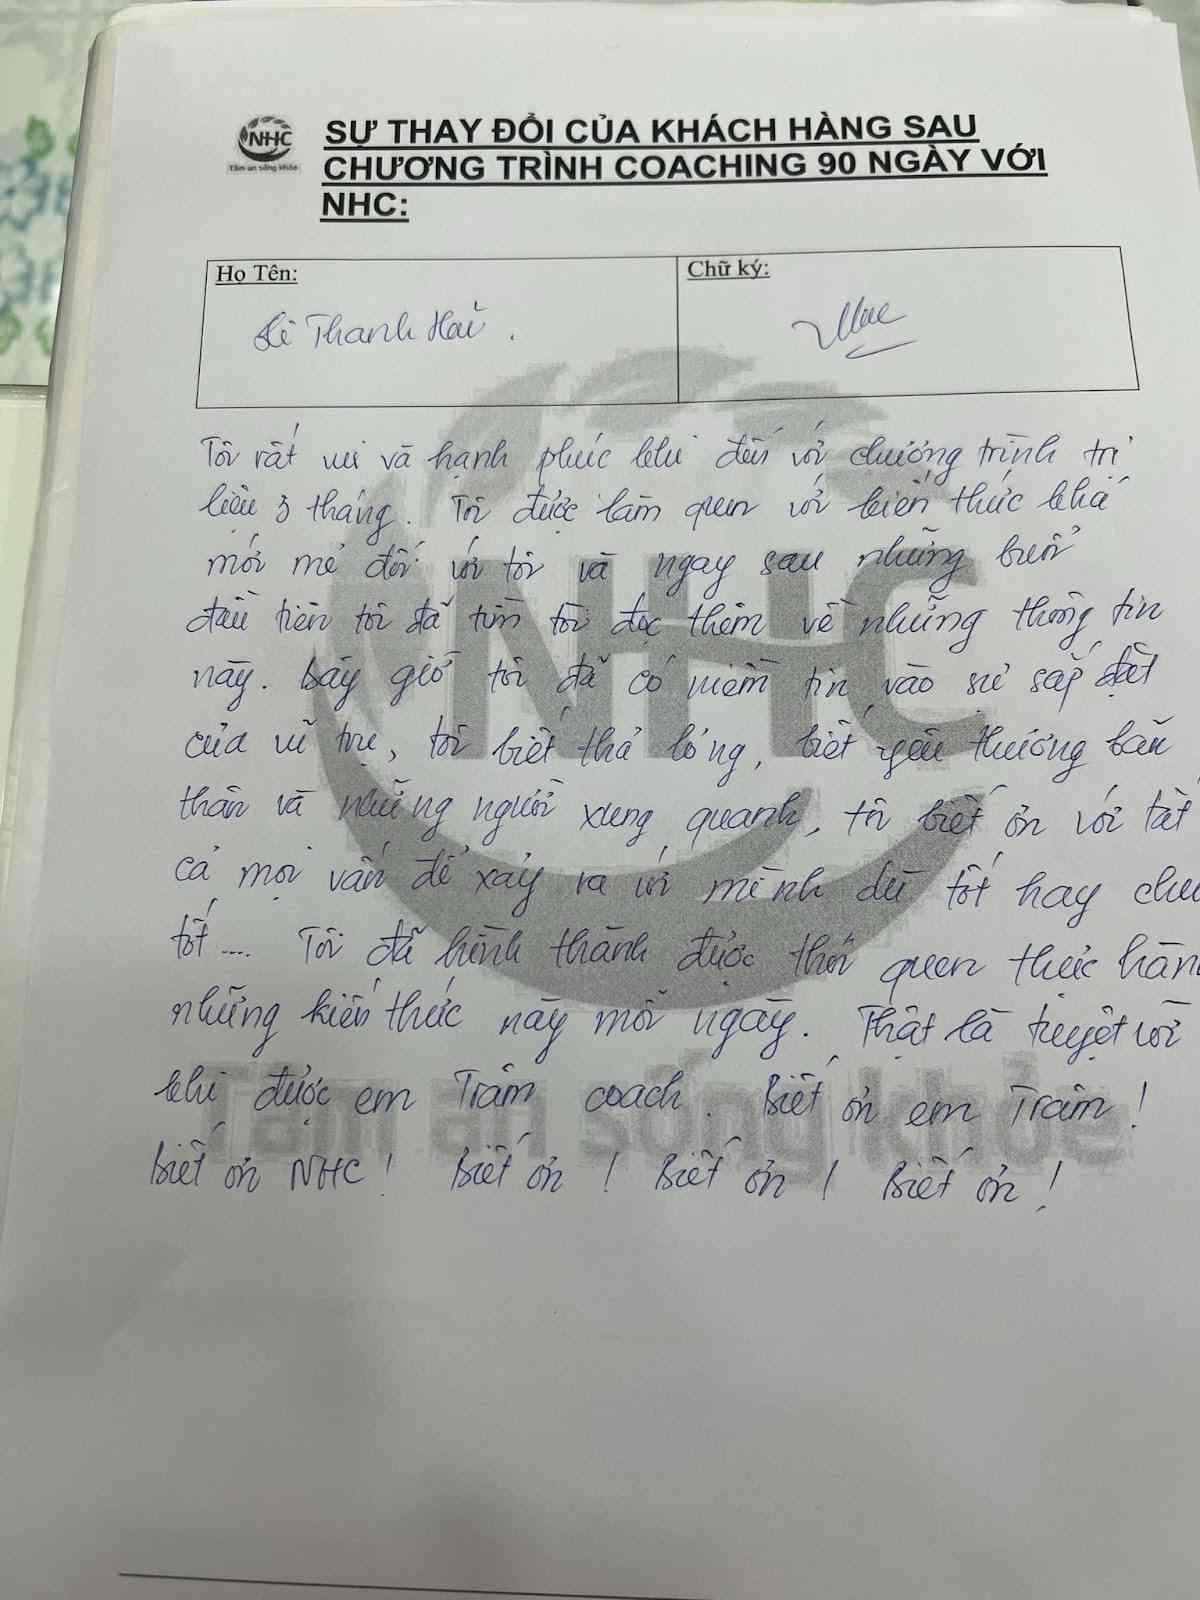 NHC
Tâm an sống khỏe
SỰ THAY ĐỔI CỦA KHÁCH HÀNG SAU
CHƯƠNG TRÌNH COACHING 90 NGÀY VỚI
NHC:
Họ Tên:
Chữ ký:
Lê Thanh Hải.
Tôi rất vui và hạnh phúc khi đến với chương trình trị
liệu 3 tháng. Tôi được làm quen với kiến thức khá
mới mẻ đối với tôi và ngay sau những buổi
đầu tiên tôi đã tìm tòi đọc thêm về những thông tin
này. Bây giờ tôi đã có niềm tin vào sự sắp đặt
của vũ trụ, tôi biết thả lỏng, biết yêu thương bản
thân và những người xung quanh, tôi biết ơn với tất
cả mọi vấn đề xảy ra với mình dù tốt hay chưa
tốt .... Tôi đã hình thành được thói quen thực hành
những kiến thức này mỗi ngày. Thật là tuyệt vời
khi được em Trâm coach. Biết ơn em Trâm!
Biết ơn NHC! Biết ơn! Biết ơn! Biết ơn!
NHC
Tâm an sống khỏe